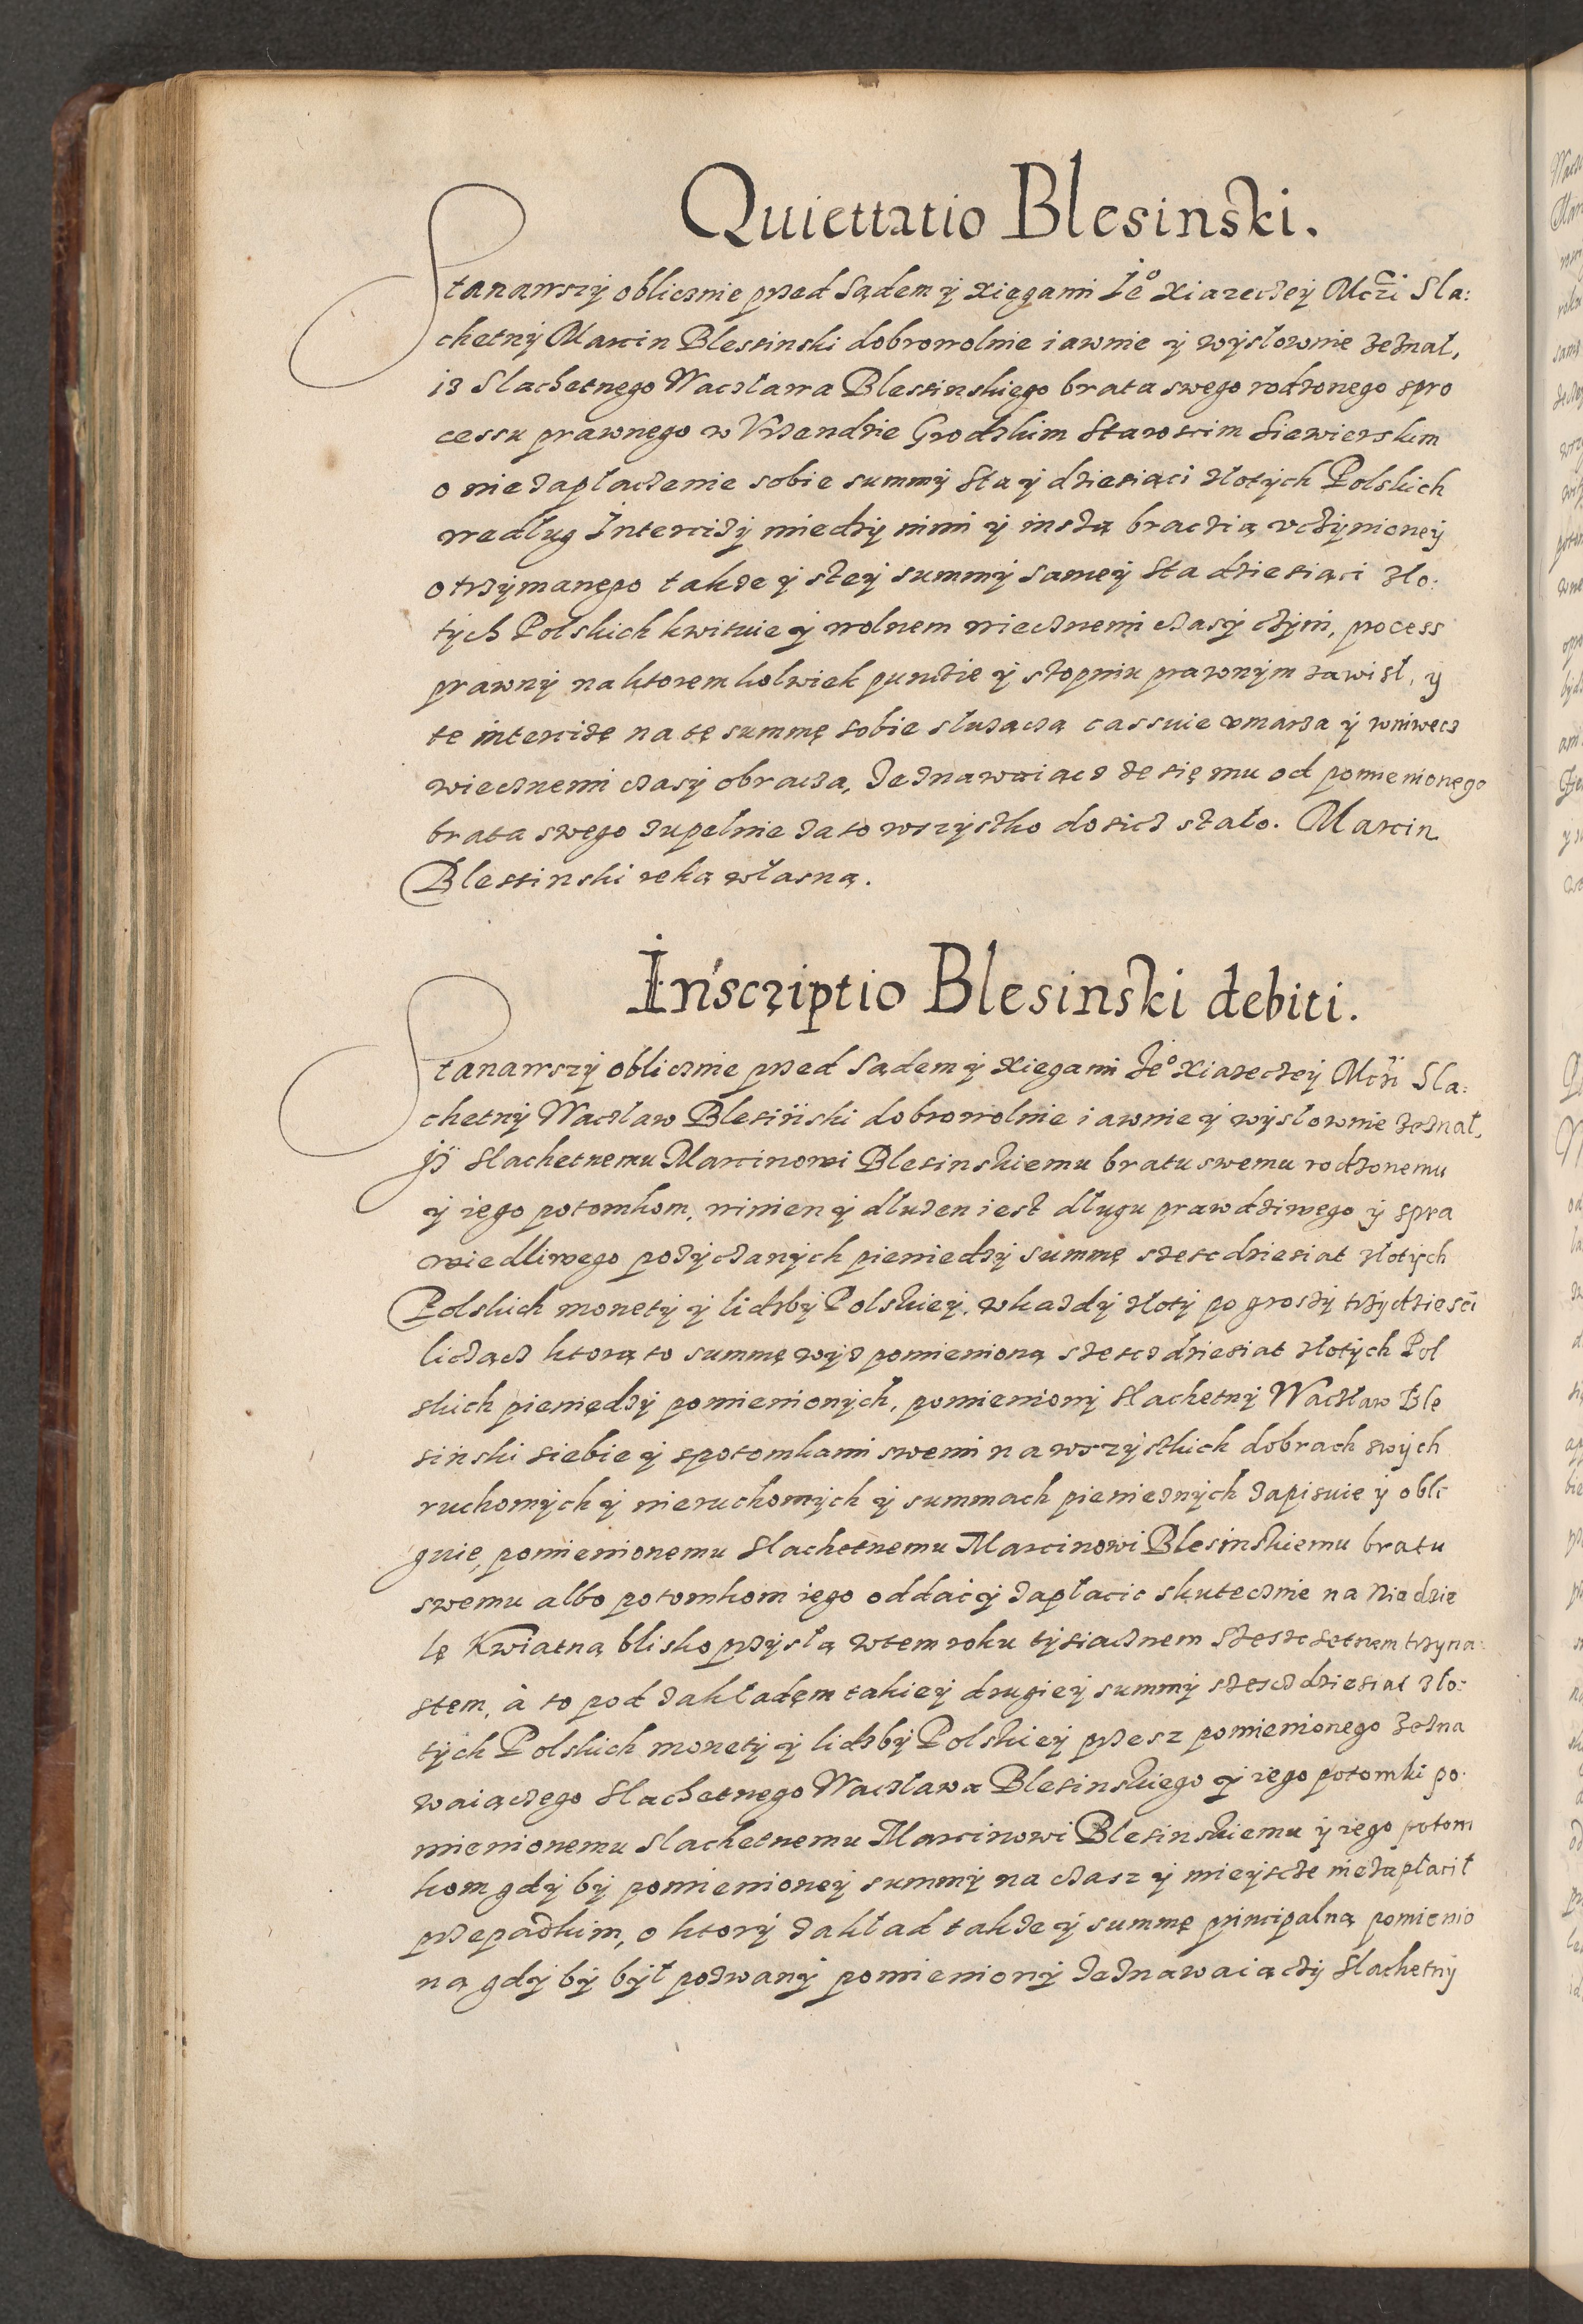 Quiettatio Blesinski.
Stanawszy oblicznie przed Sądem y xięgami Je° Xiazeczey Mczi Sla:
chetny Marcin Blessinski dobrowolnie iawnie y wysłownie zeznał,
iz Slachetnego Wacława Blessinskiego brata swego rodzonego spro
cessu prawnego w Vrzendzie Grodzkim Staroscim Siewierskim
o niezapłaczenie sobie summy sta y dziesiąci złotych Polskich
według Intercizy miedzy nimi y inszą braczią vczynioney
otrzymanego takze y stey summy samey sta dziesiąci zło:
tych Polskich kwituie y wolnem wiecznemi czasy czyni, pocess
prawny na ktorem kolwiek punczie y stopniu prawnym zawisł, y
te intercizę na tę summę sobie słuzączą cassuie vmarza y wniwecz
wiecznemi czasy obracza, Zeznawaiącz ze się mu od pomienionego
brata swego zupełnie za to wszystko dosicz stało. Marcin
Blessinski ręką własną.
Inscriptio Blesinski debiti.
Stanawszy oblicznie przed Sądem y Xiegami Je° Xiazeczey Mczi Sla:
chetny Wacław Blesinski dobrowolnie iawnie y wysłownie zeznał,
Jz slachetnemu Marcinowi Blesinskiemu bratu swemu rodzonemu
y iego potomkom, winien y dłuzen iest długu prawdziwego y spra
wiedliwego pozyczanych pieniedzy summę szescdziesiat złotych
Polskich monety y lidzby Polskiey, w kazdy złoty po groszy trzydziesci
liczącz ktorą to summę wyz pomienioną szesczdziesiat złotych Pol
skich pieniędzy pomienionych, pomieniony slachetny Wacław Ble
sinski siebie y spotomkami swemi na wszystkich dobrach swych
ruchomych y nieruchomych y summach pienieznych zapisuie y oble
guie, pomienionemu slachetnemu Marcinowi Blesinskiemu bratu
swemu albo potomkom iego oddać y zapłacic skutecznie na Niedzie
lę Kwiatną blisko przysłą wtem roku tysiacznem szescsetnem trzyna:
stem, à to pod zakładęm takiey drugiey summy szesczdziesiat zło:
tych Polskich monety y lidzby Polskiey przesz pomienionego zezna
waiączego slachetnego Wacława Blesinskiego y iego potomki po:
mienionemu slachetnemu Marcinowi Blesinskiemu y iego potom
kom gdy by pomienioney summy na czasz y mieyscze niezapłacił
przepadkim, o ktory zakład takze y summę principalną pomienio
ną gdy by był pozwany pomieniony zeznawaiączy slachetny